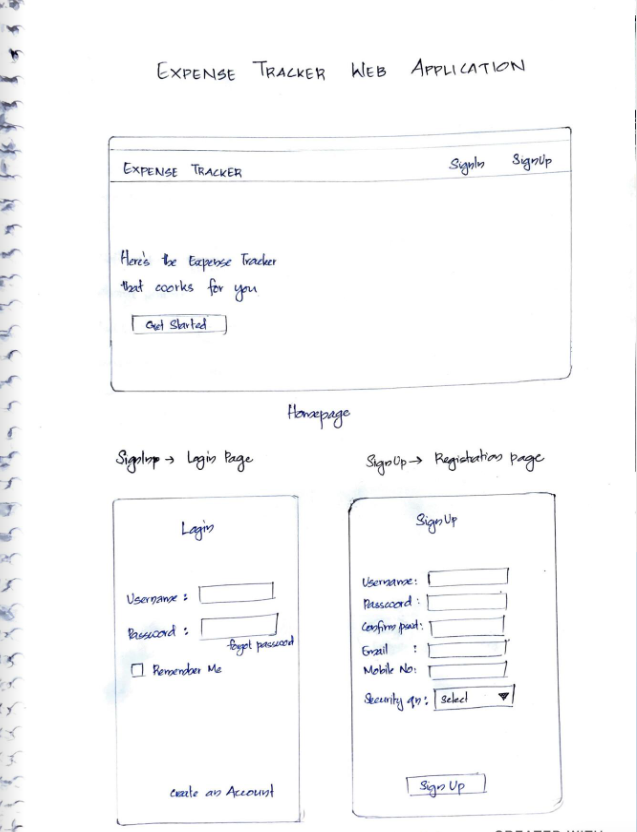 EXPENSE TRACKER WEB APPLICATION
EXPENSE TRACKER SignIn SignUp
Here's the Expense Tracker
that works for you
Get Started
Homepage
SignInp → Login Page
SignUp → Registration page
Login
Username :
Password :
forgot password
Remember Me
Create an Account
SignUp
Username:
Password :
Confirm pswd:
Email :
Mobile No:
Security qn: Select
Sign Up